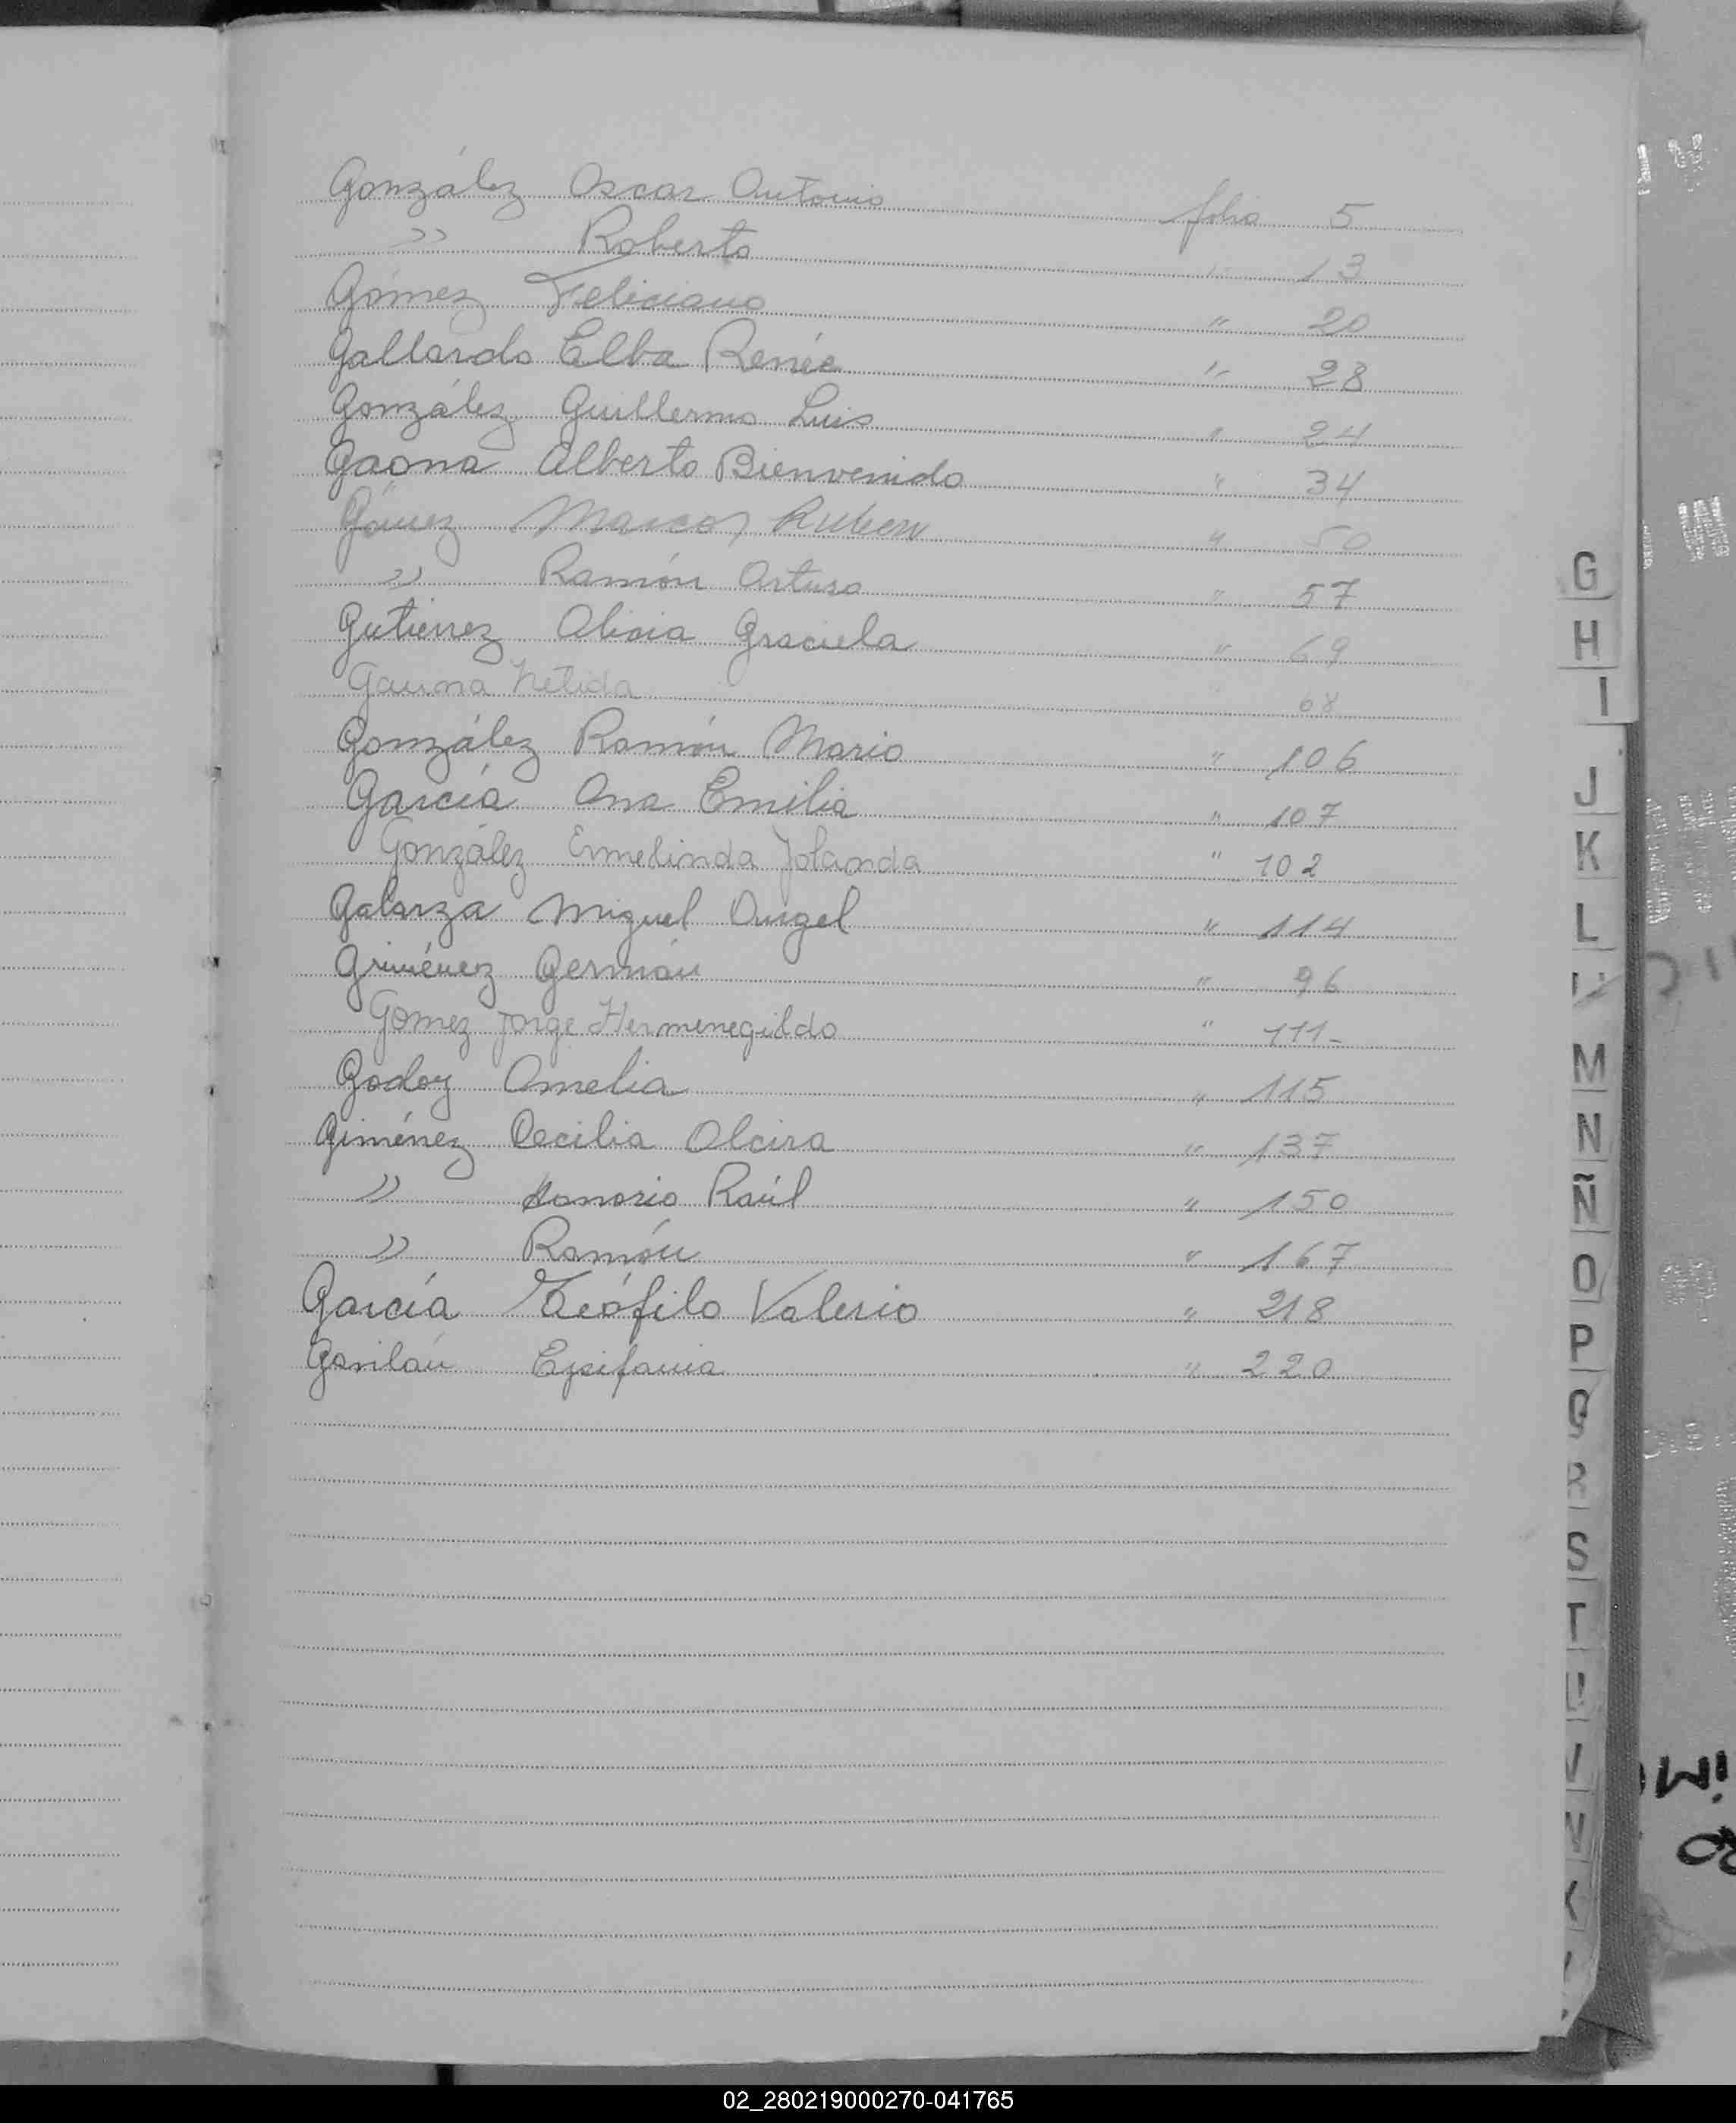 González Oscar Antonio folio 5
" Roberto " 13
Gómez Feliciano " 20
Gallardo Elba Renée " 28
González Guillermo Luis " 24
Gaona Alberto Bienvenido " 34
Gómez Marcos Ruben " 50
" Ramón Arturo " 57
Gutierrez Alicia Graciela " 69
Gauna Nélida " 68
González Ramón Mario " 106
García Ana Emilia " 107
González Ermelinda Jolanda " 102
Galarza Miguel Angel " 114
Griménez Germán " 96
Gomez Jorge Hermenegildo " 111-
Godoy Amelia " 115
Giménez Cecilia Alcira " 137
" Honorio Raúl " 150
" Ramón " 167
García Teófilo Valerio " 218
Gavilán Epifania " 220
G
H
I
J
K
L
M
N
Ñ
O
P
Q
R
S
T
U
V
X
02_280219000270-041765